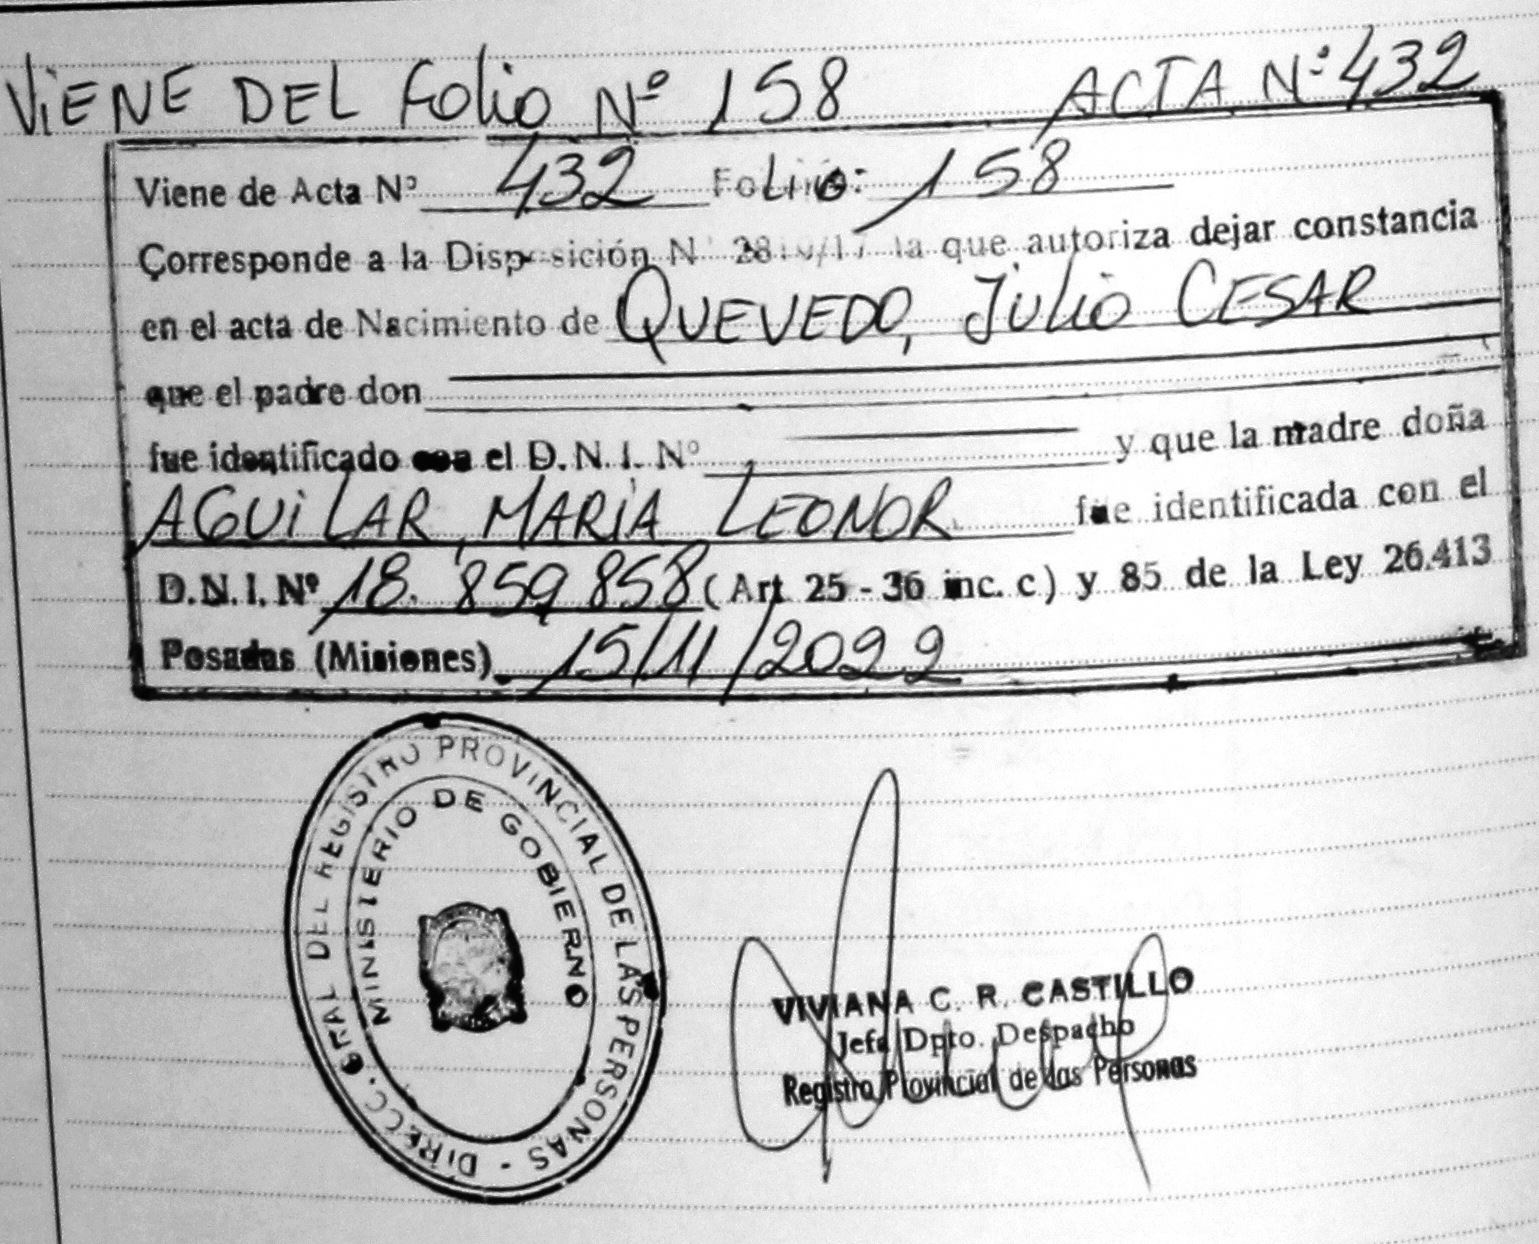 ViENE DEL Folio Nº 158 ACTA Nº 432
Viene de Acta Nº 432 Folio: 158
Corresponde a la Disposición N la que autoriza dejar constancia
en el acta de Nacimiento de QUEVEDO, JULIO CESAR
que el padre don
fue identificado con el D.N.I. Nº y que la madre doña
AGUiLAR, MARIA LEONOR fue identificada con el
D.N.I. Nº 18.859.858 (Art 25 - 36 inc. c) y 85 de la Ley 26.413
Posadas (Misiones) 15/11/2022
DIRECC. GRAL DEL REGISTRO PROVINCIAL DE LAS PERSONAS -
MINISTERIO DE GOBIERNO
VIVIANA C. R. CASTILLO
Jefa Dpto. Despacho
Registro Provincial de las Personas